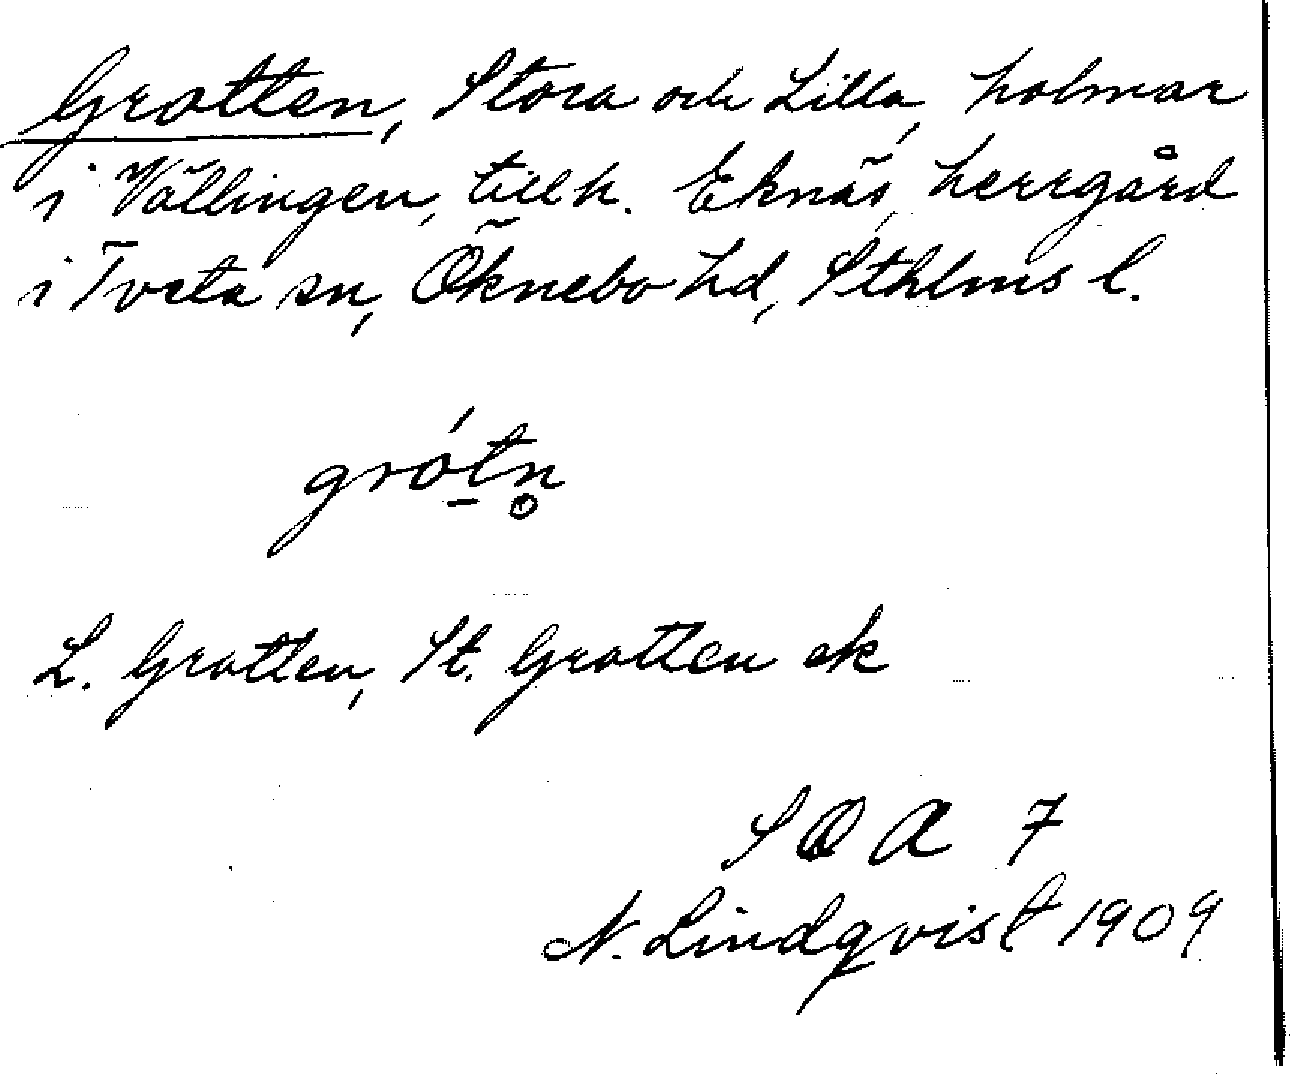 Grotten, Stora och Lilla, holmar
i Vällingen, tillh. Eknäs, herrgård
i Tveta sn, Öknebo hd, Sthlms l.
grót̠n̥
L. Grotten, St. Grotten ek
SOA 7
N. Lindqvist 1909